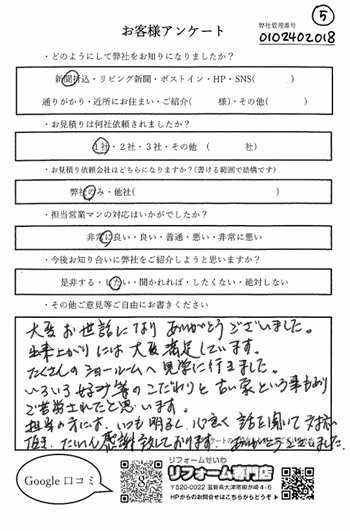 ⑤
お客様アンケート
弊社管理番号
0102402018
・どのようにして弊社をお知りになりましたか？
新聞折込・リビング新聞・ポストイン・HP・SNS(　　　)
通りがかり・近所にお住まい・ご紹介(　　　様)・その他(　　　)
・お見積りは何社依頼されましたか？
1社・2社・3社・その他　(　　　社)
・お見積り依頼会社はどちらになりますか？(書ける範囲で結構です)
弊社のみ・他社(　　　)
・担当営業マンの対応はいかがでしたか？
非常に良い・良い・普通・悪い・非常に悪い
・今後お知り合いに弊社をご紹介しようと思いますか？
是非する・したい・聞かれれば・したくない・絶対しない
・その他ご意見等ご自由にお書きください
大変お世話になり ありがとうございました。
出来上がりには大変満足しています。
たくさんのショールームへ見学に行きました。
いろいろ好み等のこだわりと古い家という事もあり
ご苦労されたと思います。
担当の方には、いつも明るく 心良く 話を聞いて
頂き たいへん感謝致しております ありがとうございました。
Google 口コミ
リフォームせいわ
リフォーム専門店
〒520-0022 滋賀県大津市柳が崎4-6
HPからのお問合せはこちらからどうぞ